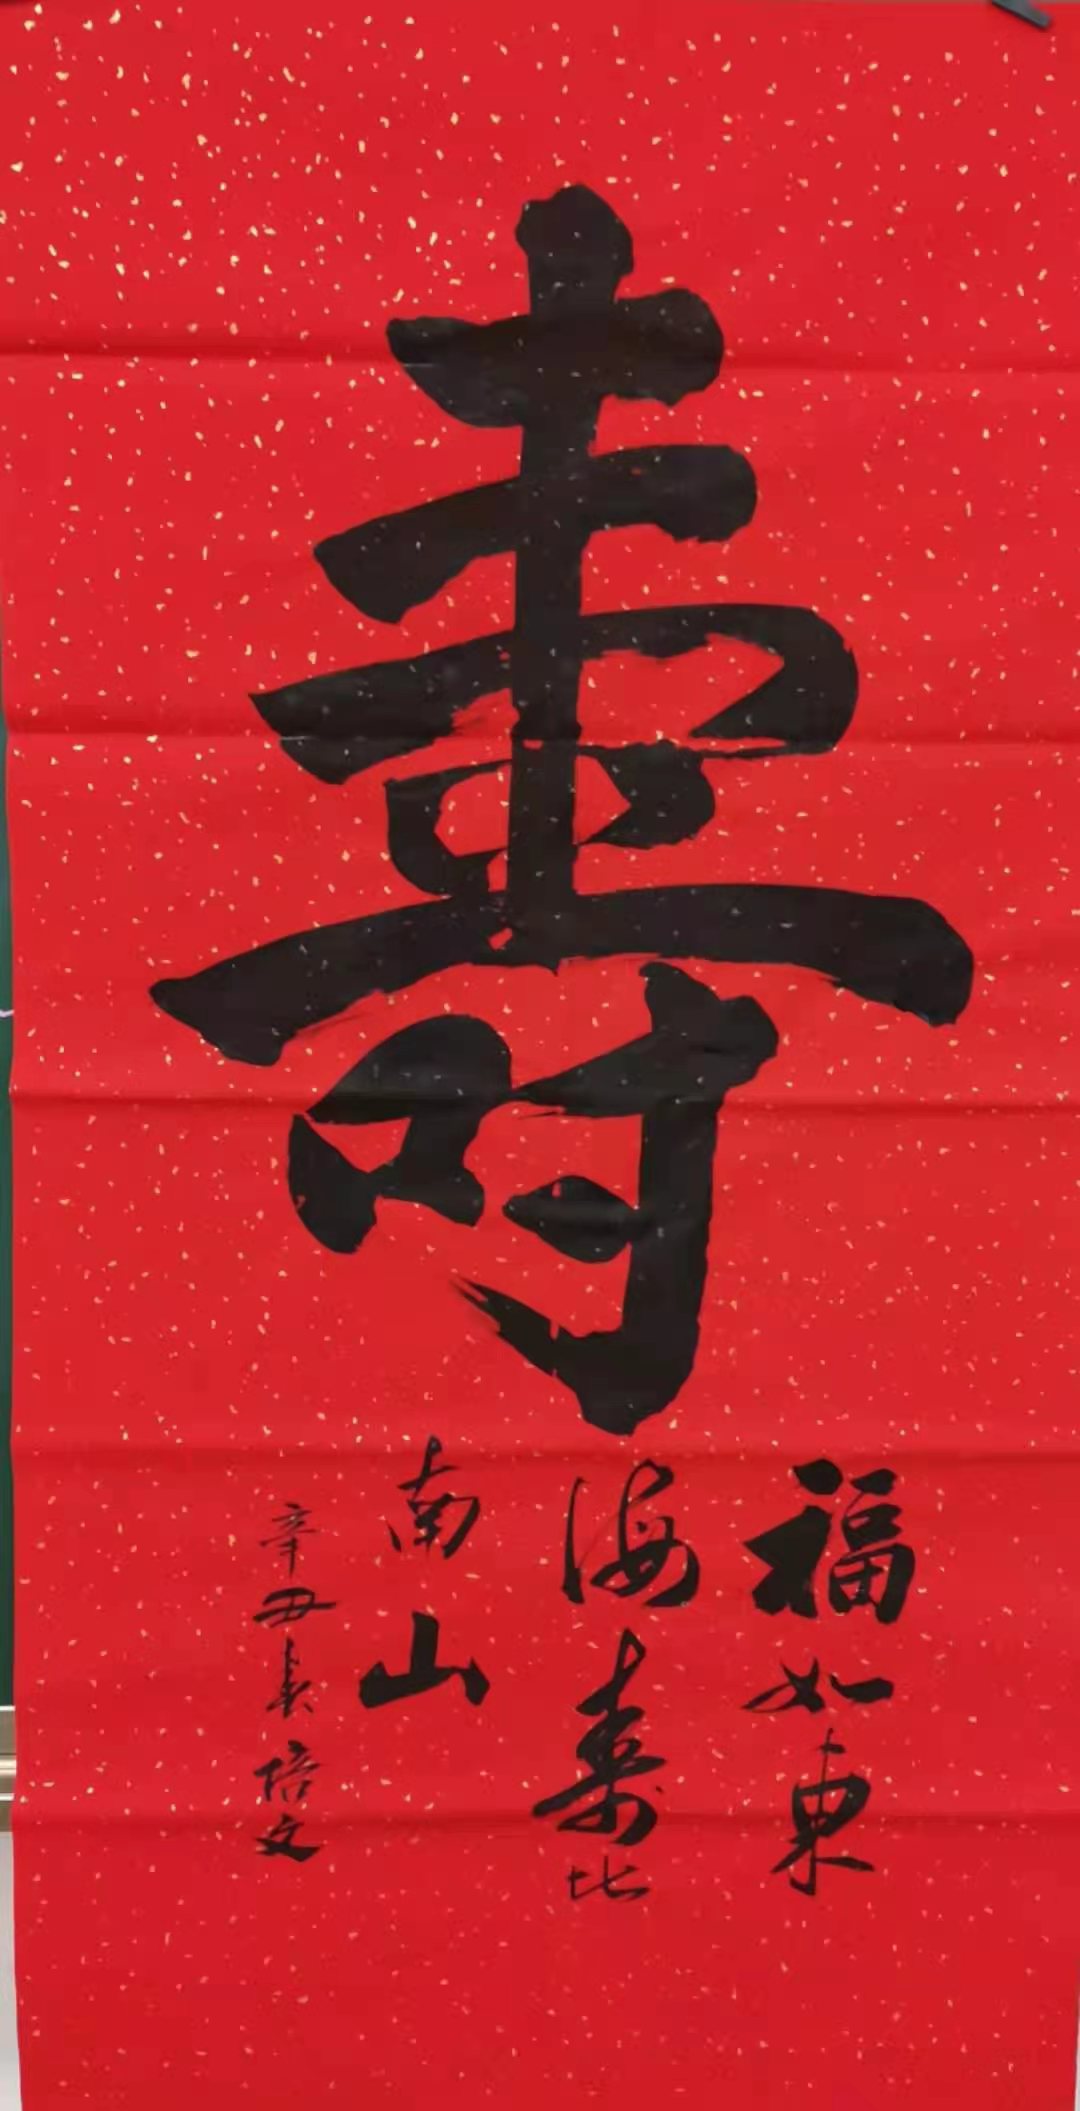 壽
福如東
海壽比
南山
辛丑春培文